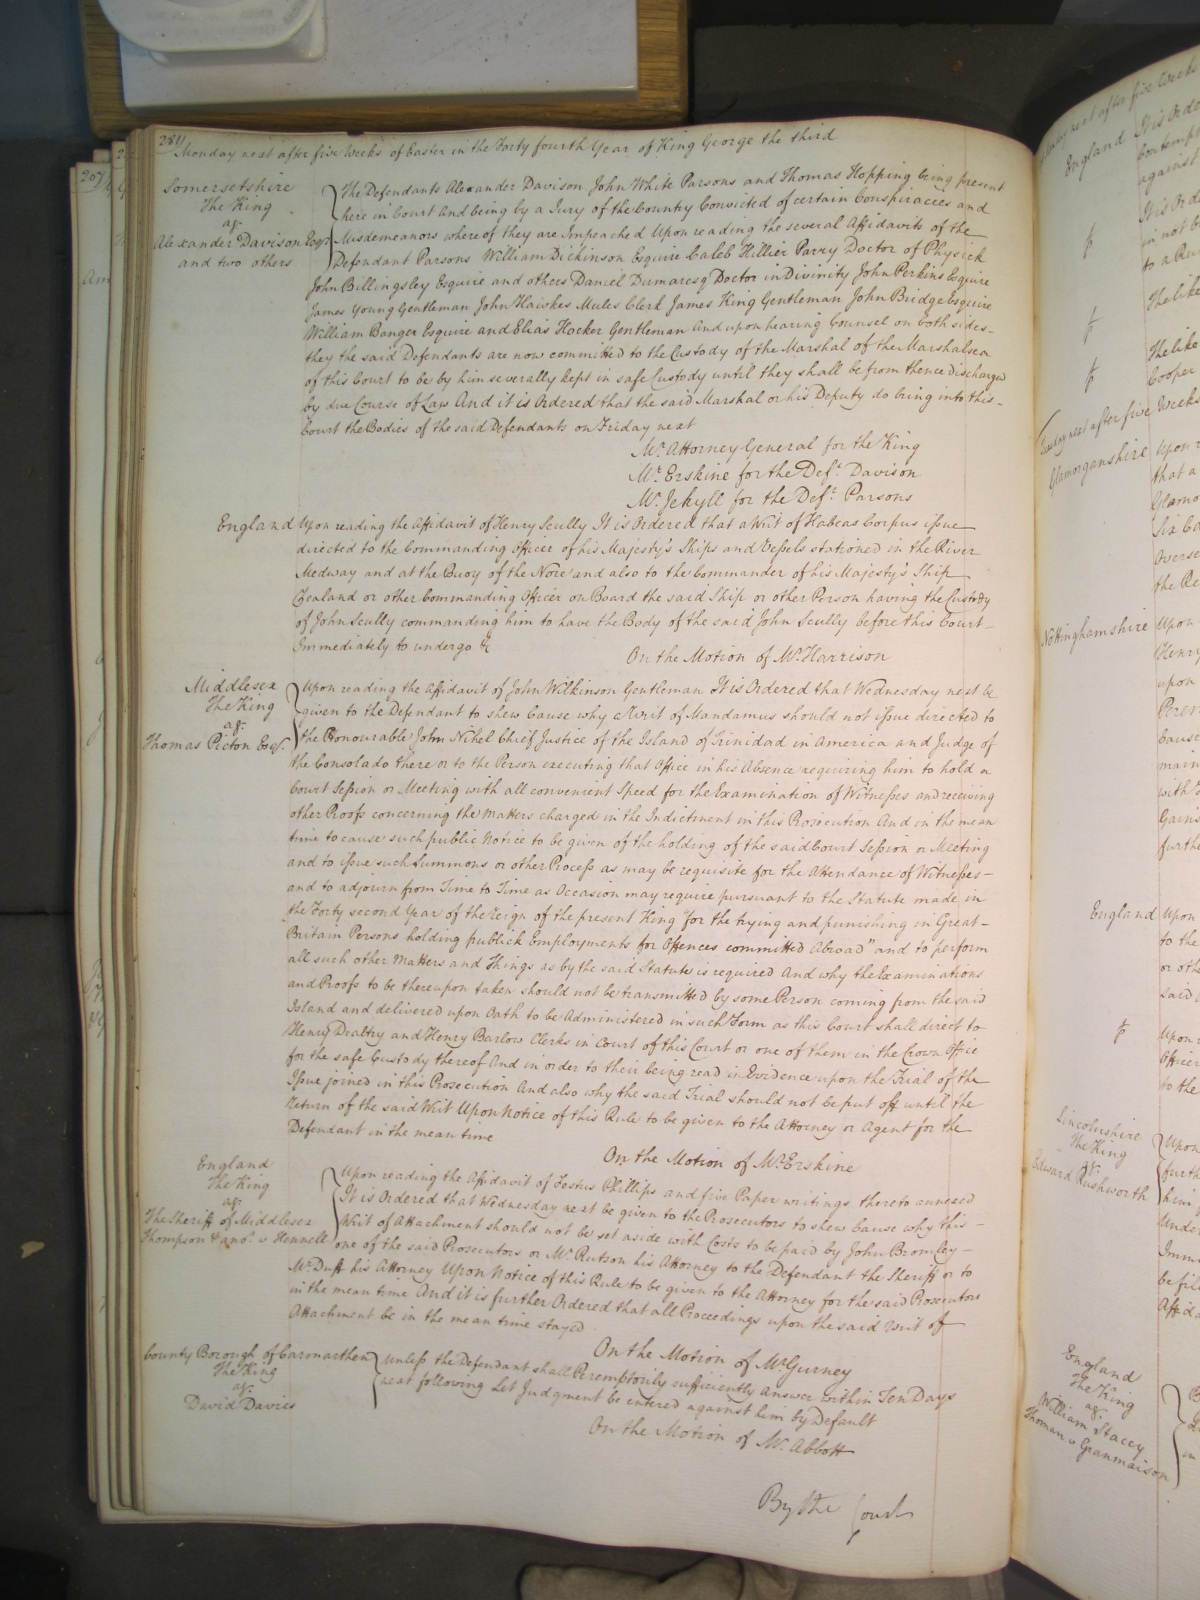 Monday next after five Weeks of Easter in the Forty fourth Year of King George the third
Somersetshire
The King
agt
Alexander Davison Esqr
and two others
The Defendants Alexander Davison John White Parsons and Thomas Hopping being present
here in Court And being by a Jury of the Country Convicted of certain Conspiracies and
Misdemeanors whereof they are Impeached Upon reading the several Affidavits of the
Defendant Parsons William Dickinson Esquire Caleb Hillier Parry Doctor of Physick
John Billingsley Esquire and others Daniel Dumaresq Doctor in Divinity John Perkins Esquire
James Young Gentleman John Hawkes Mules Clerk James King Gentleman John Bridge Esquire
William Banger Esquire and Elias Hocker Gentleman And upon hearing Counsel on both sides
they the said Defendants are now committed to the Custody of the Marshal of the Marshalsea
of this Court to be by him severally kept in safe Custody until they shall be from thence discharged
by due Course of Law And it is Ordered that the said Marshal or his Deputy do bring into this
Court the Bodies of the said Defendants on Friday next
Mr. Attorney General for the King
Mr. Erskine for the Deft. Davison
Mr. Jekyll for the Deft. Parsons
England Upon reading the Affidavit of Henry Scully It is Ordered that a Writ of Habeas Corpus issue
directed to the Commanding Officer of his Majesty's Ships and Vessels stationed in the River
Medway and at the Buoy of the Nore and also to the Commander of his Majesty's Ship
Zealand or other Commanding Officer on Board the said Ship or other Person having the Custody
of John Scully commanding him to have the Body of the said John Scully before this Court
Immediately to undergo &c
On the Motion of Mr. Harrison
Middlesex
The King
agt
Thomas Picton Esqr.
Upon reading the Affidavit of John Wilkinson Gentleman It is Ordered that Wednesday next be
given to the Defendant to shew Cause why a Writ of Mandamus should not issue directed to
the Honourable John Nihel Chief Justice of the Island of Trinidad in America and Judge of
the Consolado there or to the Person executing that Office in his Absence requiring him to hold a
Court Session or Meeting with all convenient Speed for the Examination of Witnesses and receiving
other Proofs concerning the Matters charged in the Indictment in this Prosecution And in the mean
time to cause such public Notice to be given of the holding of the said Court Session or Meeting
and to issue such Summons or other Process as may be requisite for the Attendance of Witnesses
and to adjourn from Time to Time as Occasion may require pursuant to the Statute made in
the Forty second Year of the reign of the present King "for the trying and punishing in Great
Britain Persons holding publick Employments for Offences committed Abroad" and to perform
all such other Matters and Things as by the said Statute is required And why the Examinations
and Proofs to be thereupon taken should not be transmitted by some Person coming from the said
Island and delivered upon Oath to be Administered in such Form as this Court shall direct to
Henry Dealtry and Henry Barlow Clerks in Court of this Court or one of them in the Crown Office
for the safe Custody thereof And in order to their being read in Evidence upon the Trial of the
Issue joined in this Prosecution And also why the said Trial should not be put off until the
Return of the said Writ Upon Notice of this Rule to be given to the Attorney or Agent for the
Defendant in the mean time
On the Motion of Mr. Erskine
England
The King
agt
The Sheriff of Middlesex
Thompson & anor. v Hennell
Upon reading the Affidavit of Festus Phillips and five Paper writings thereto annexed
It is Ordered that Wednesday next be given to the Prosecutors to shew Cause why this
Writ of Attachment should not be set aside with Costs to be paid by John Bromley
one of the said Prosecutors or Mr. Rutson his Attorney to the Defendant the Sheriff or to
Mr. Duff his Attorney Upon Notice of this Rule to be given to the Attorney for the said Prosecutors
in the mean time And it is further Ordered that all Proceedings upon the said Writ of
Attachment be in the mean time stayed
On the Motion of Mr. Gurney
County Borough of Carmarthen
The King
agt
David Davies
Unless the Defendant shall Peremptorily sufficiently answer within Ten Days
next following Let Judgment be entered against him by Default
On the Motion of Mr. Abbott
By the Court
England
Glamorganshire
Nottinghamshire
England
Lincolnshire
The King
agt
Edward Rushworth
England
The King
agt.
William Stacey